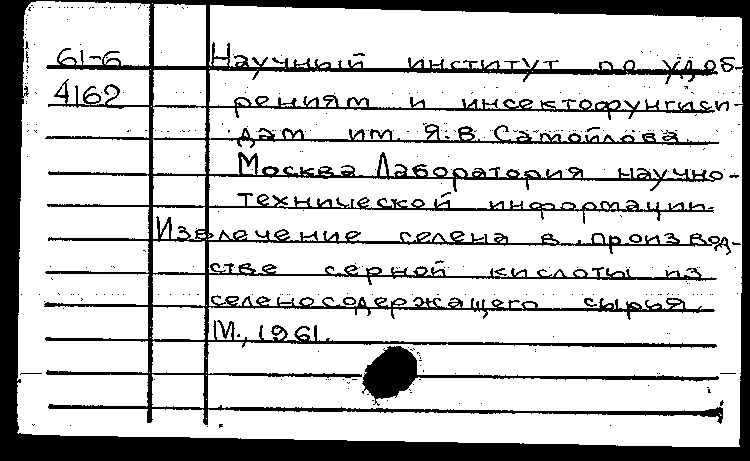 61-6 Научный институт по удоб-
4162 рениям и инсектофунгиси-
дам им. Я.В. Самойлова
Москва Лаборатория научно-
технической информации.
Извлечение селена в произвед-
стве серной кислоты из
селеносодержащего сырья.
М., 1961.